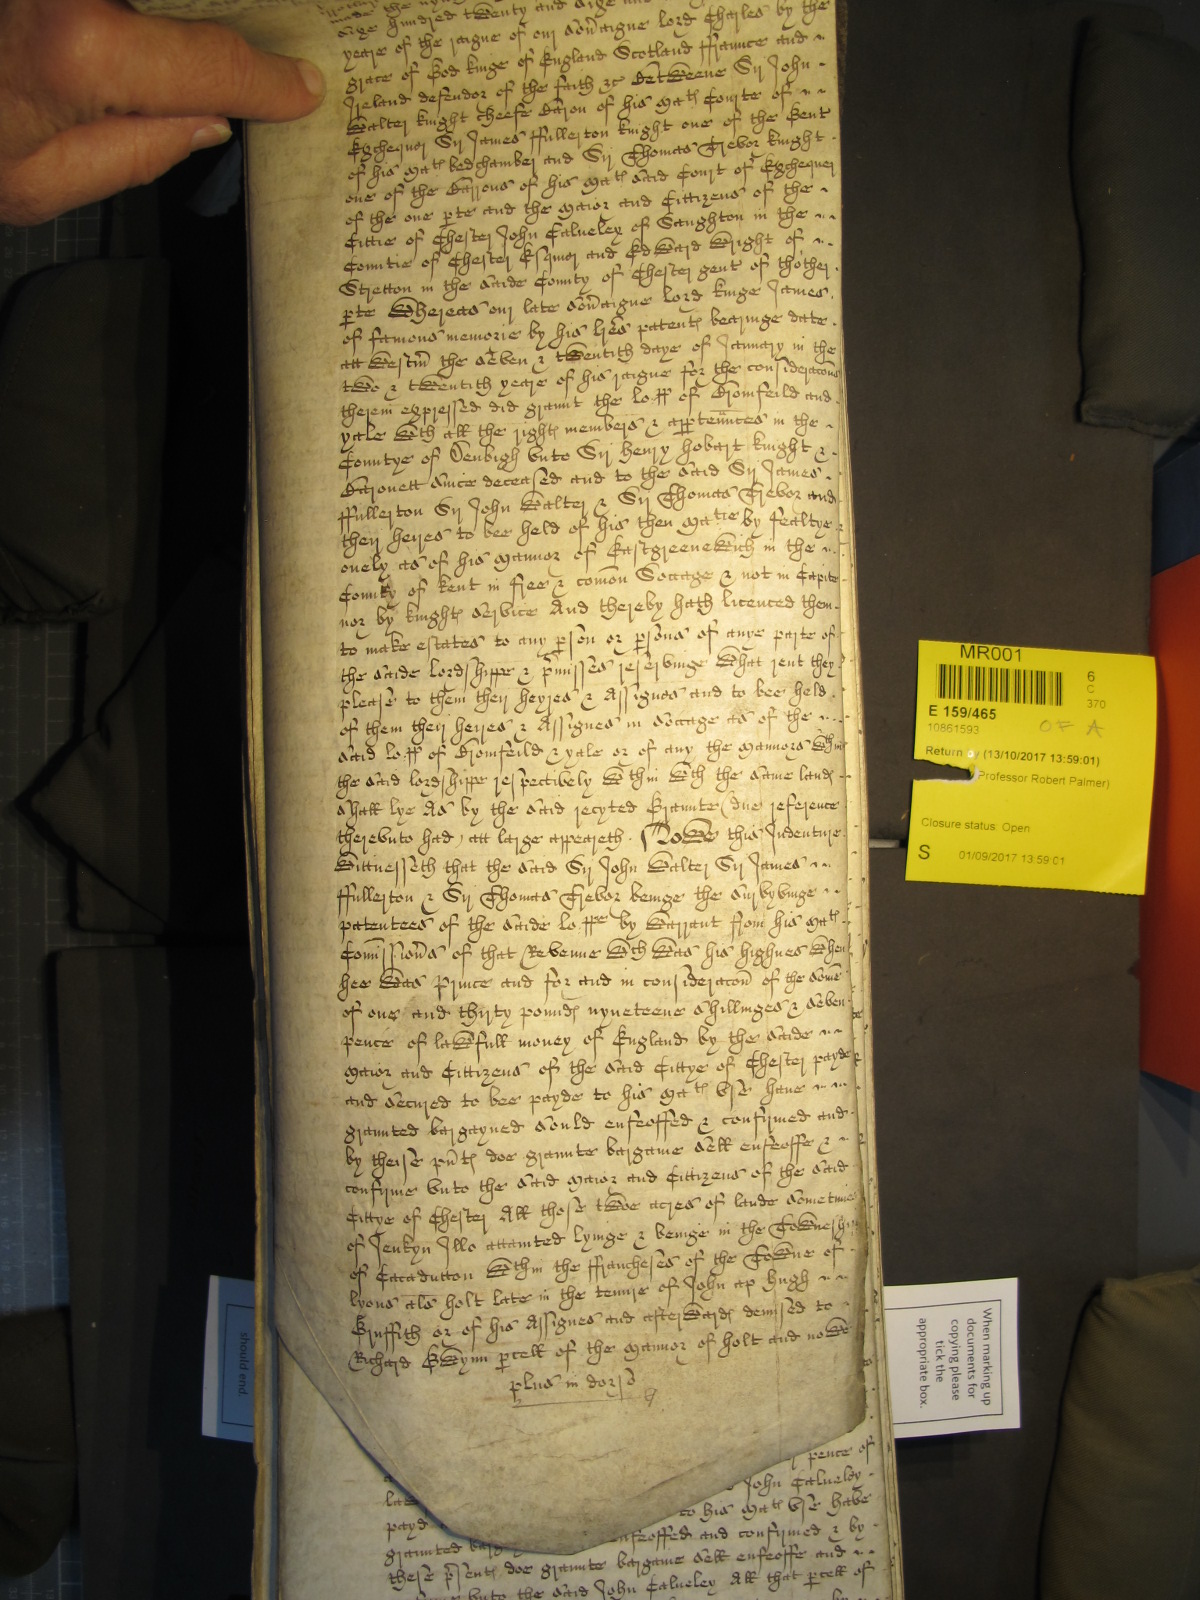 made the nyne
sixe hundred twenty and sixe and
yeare of the raigne of our Sov̄aigne Lord Charles by the
grace of God kinge of England Scotland ffraunce and
Ireland defendor of the faith &c Betweene Sir John
Walter knight cheefe Baron of his Mats Courte of
Exchequer Sir James ffullerton knight one of the Gent
of his Mats bedchamber and Sir Thomas Trevor knight
one of the Barrons of his Mats said Court of Exchequer
of the one pte and the Maior and Cittizens of the
Cittie of Chester John Calveley of Saughton in the
Countie of Chester Esquier and Edward Wright of
Stretton in the saide County of Chester gent of thother
pte Whereas our late Sov̄aigne Lord kinge James
of famous memorie by his lr̄es patents bearinge date
att Westm̄ the seven & twentith daye of January in the
two & twentith yeare of his raigne for the consideracons
therein expressed did graunt the Lo:pp of Bromfeild and
yale Wth all the rights members & apptennces in the
Countye of Denbigh unto Sir Henry Hobart knight &
Baronett since deceased and to the said Sir James
ffullerton Sir John Walter & Sir Thomas Trevor and
their heires to bee held of his then Matie by fealtye
onely as of his Mannor of Eastgreenewich in the
County of Kent in free & com̄on Soccage & not in Capite
nor by knights service And thereby hath licenced them
to make estates to any pson or psons of anye parte of
the saide Lordshippe & pmisses reservinge What rent they
please to them their heyres & Assignes and to bee held
of them their heires & Assignes in soccage as of the
said Lo:pp of Bromfeild & yale or of any the Mannors Wthin
the said lordshippe respectively Wthin Wth the same lands
shall lye As by the said recyted Graunte (due reference
thereunto had) att large appeareth. Nowe this Indenture
Wittnesseth that the said Sir John Walter Sir James
ffullerton & Sir Thomas Trevor beinge the survivinge
patentees of the saide Lo:ppe by Warrant from his Mats
Com̄ission̄s of that Revenue Wch Was his highnes When
hee Was Prince and for and in consideracon of the some
of one and thirty pounds nyneteene shillinges & seven
pence of lawfull money of England by the saide
Maior and Cittizens of the said Cittye of Chester payde
and secured to bee payde to his Mats use have
graunted bargayned sould enfeoffed & confirmed and
by theise pn̄ts doe graunte bargaine sell enfeoffe &
confirme unto the said Maior and Cittizens of the said
Cittye of Chester All those twoe acres of lande sometimes
of Jenkyn Illo attainted lyinge & beinge in the Towneshipp
of Cacadutton Wthin the ffrancheses of the Towne of
lyons als Holt late in the tenure of John ap Hugh
Gruffith or of his Assignes and afterwards demised to
Richard Gwynn pcell of the Mannor of Holt and nowe
plus in dorso
pence of
John Calveley
payd
to his Mats use have
graunted barg
enfeoffed and confirmed & by
these psents doe graunte bargaine sell enfeoffe and
unto the said John Calveley All that pcell of
MR001
6
C
370
E 159/465
10861593
OF A
Return by (13/10/2017 13:59:01)
Professor Robert Palmer)
Closure status: Open
S
01/09/2017 13:59:01
should end.
When marking up
documents for
copying please
tick the
appropriate box.